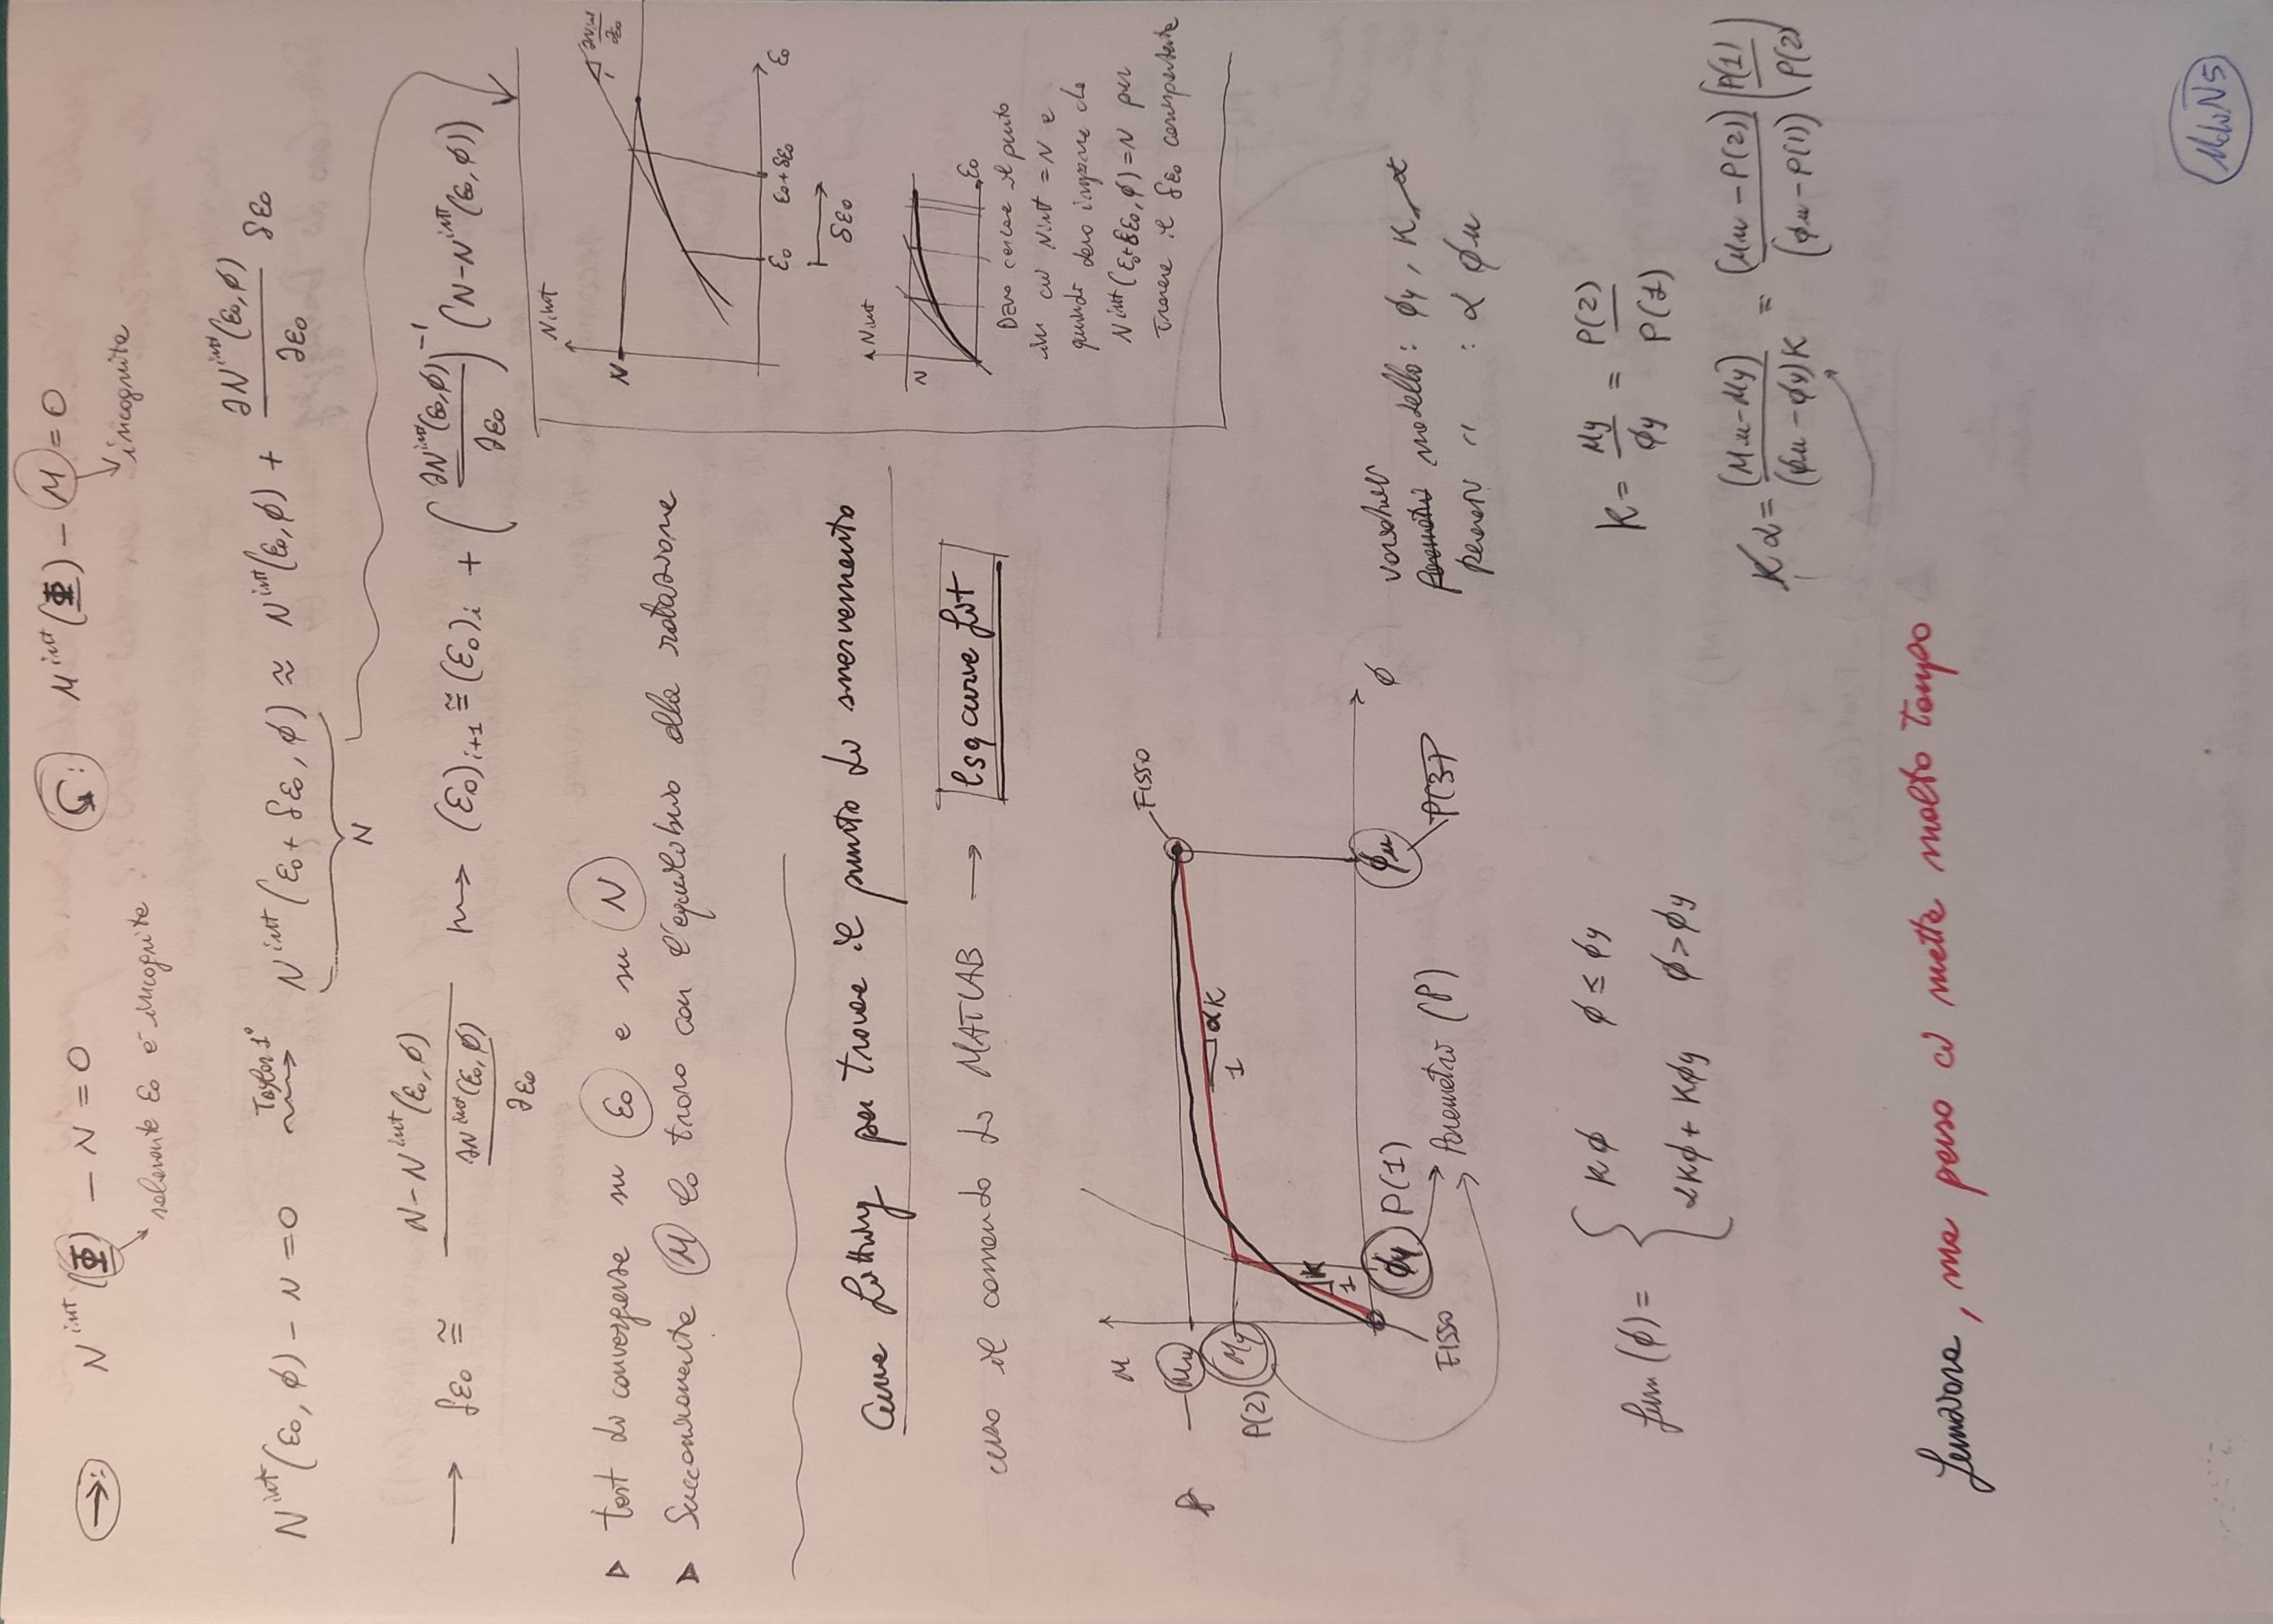 →: N^int (Φ) − N = 0
solamente ε₀ è incognita
↺: M^int (Φ) − M = 0
incognita
N^int (ε₀, ϕ) − N = 0 Taylor 1° N^int (ε₀ + δε₀, ϕ) ≈ N^int (ε₀, ϕ) + ∂N^int (ε₀, ϕ) / ∂ε₀ δε₀
N
→ δε₀ ≅ N − N^int (ε₀, ϕ) / ∂N^int (ε₀, ϕ) / ∂ε₀ ⟿ (ε₀)i+1 ≅ (ε₀)i + ( ∂N^int (ε₀, ϕ) / ∂ε₀ )^−1 (N − N^int (ε₀, ϕ))
▷ test di convergenza su ε₀ e su N
▷ Successivamente M lo trovo con l'equilibrio alla rotazione
Nint
N
∂Nint / ∂ε₀
1
ε₀ ε₀+δε₀ ε₀
δε₀
Nint
N
ε₀
Devo cercare il punto
in cui Nint = N e
quindi devo imporre che
N^int (ε₀+δε₀, ϕ) = N per
trovare il δε₀ corrispondente
Curve fitting per trovare il punto di snervamento
uso il comando di MATLAB → lsqcurvefit
M
Mu
FISSO
P(2) My
αK
1
K
1
ϕy P(1)
ϕu
ϕ
FISSO
Parametri (P)
P(3)
modello: ϕy, K, α
" : α ϕu
fun (ϕ) = { Kϕ ϕ ≤ ϕy
αKϕ + Kϕy ϕ > ϕy
K = My / ϕy = P(2) / P(1)
K α = (Mu − My) / (ϕu − ϕy)K = (Mu − P(2)) / (ϕu − P(1)) ( P(1) / P(2) )
funziona, ma penso ci metta molto tempo
MdiN5